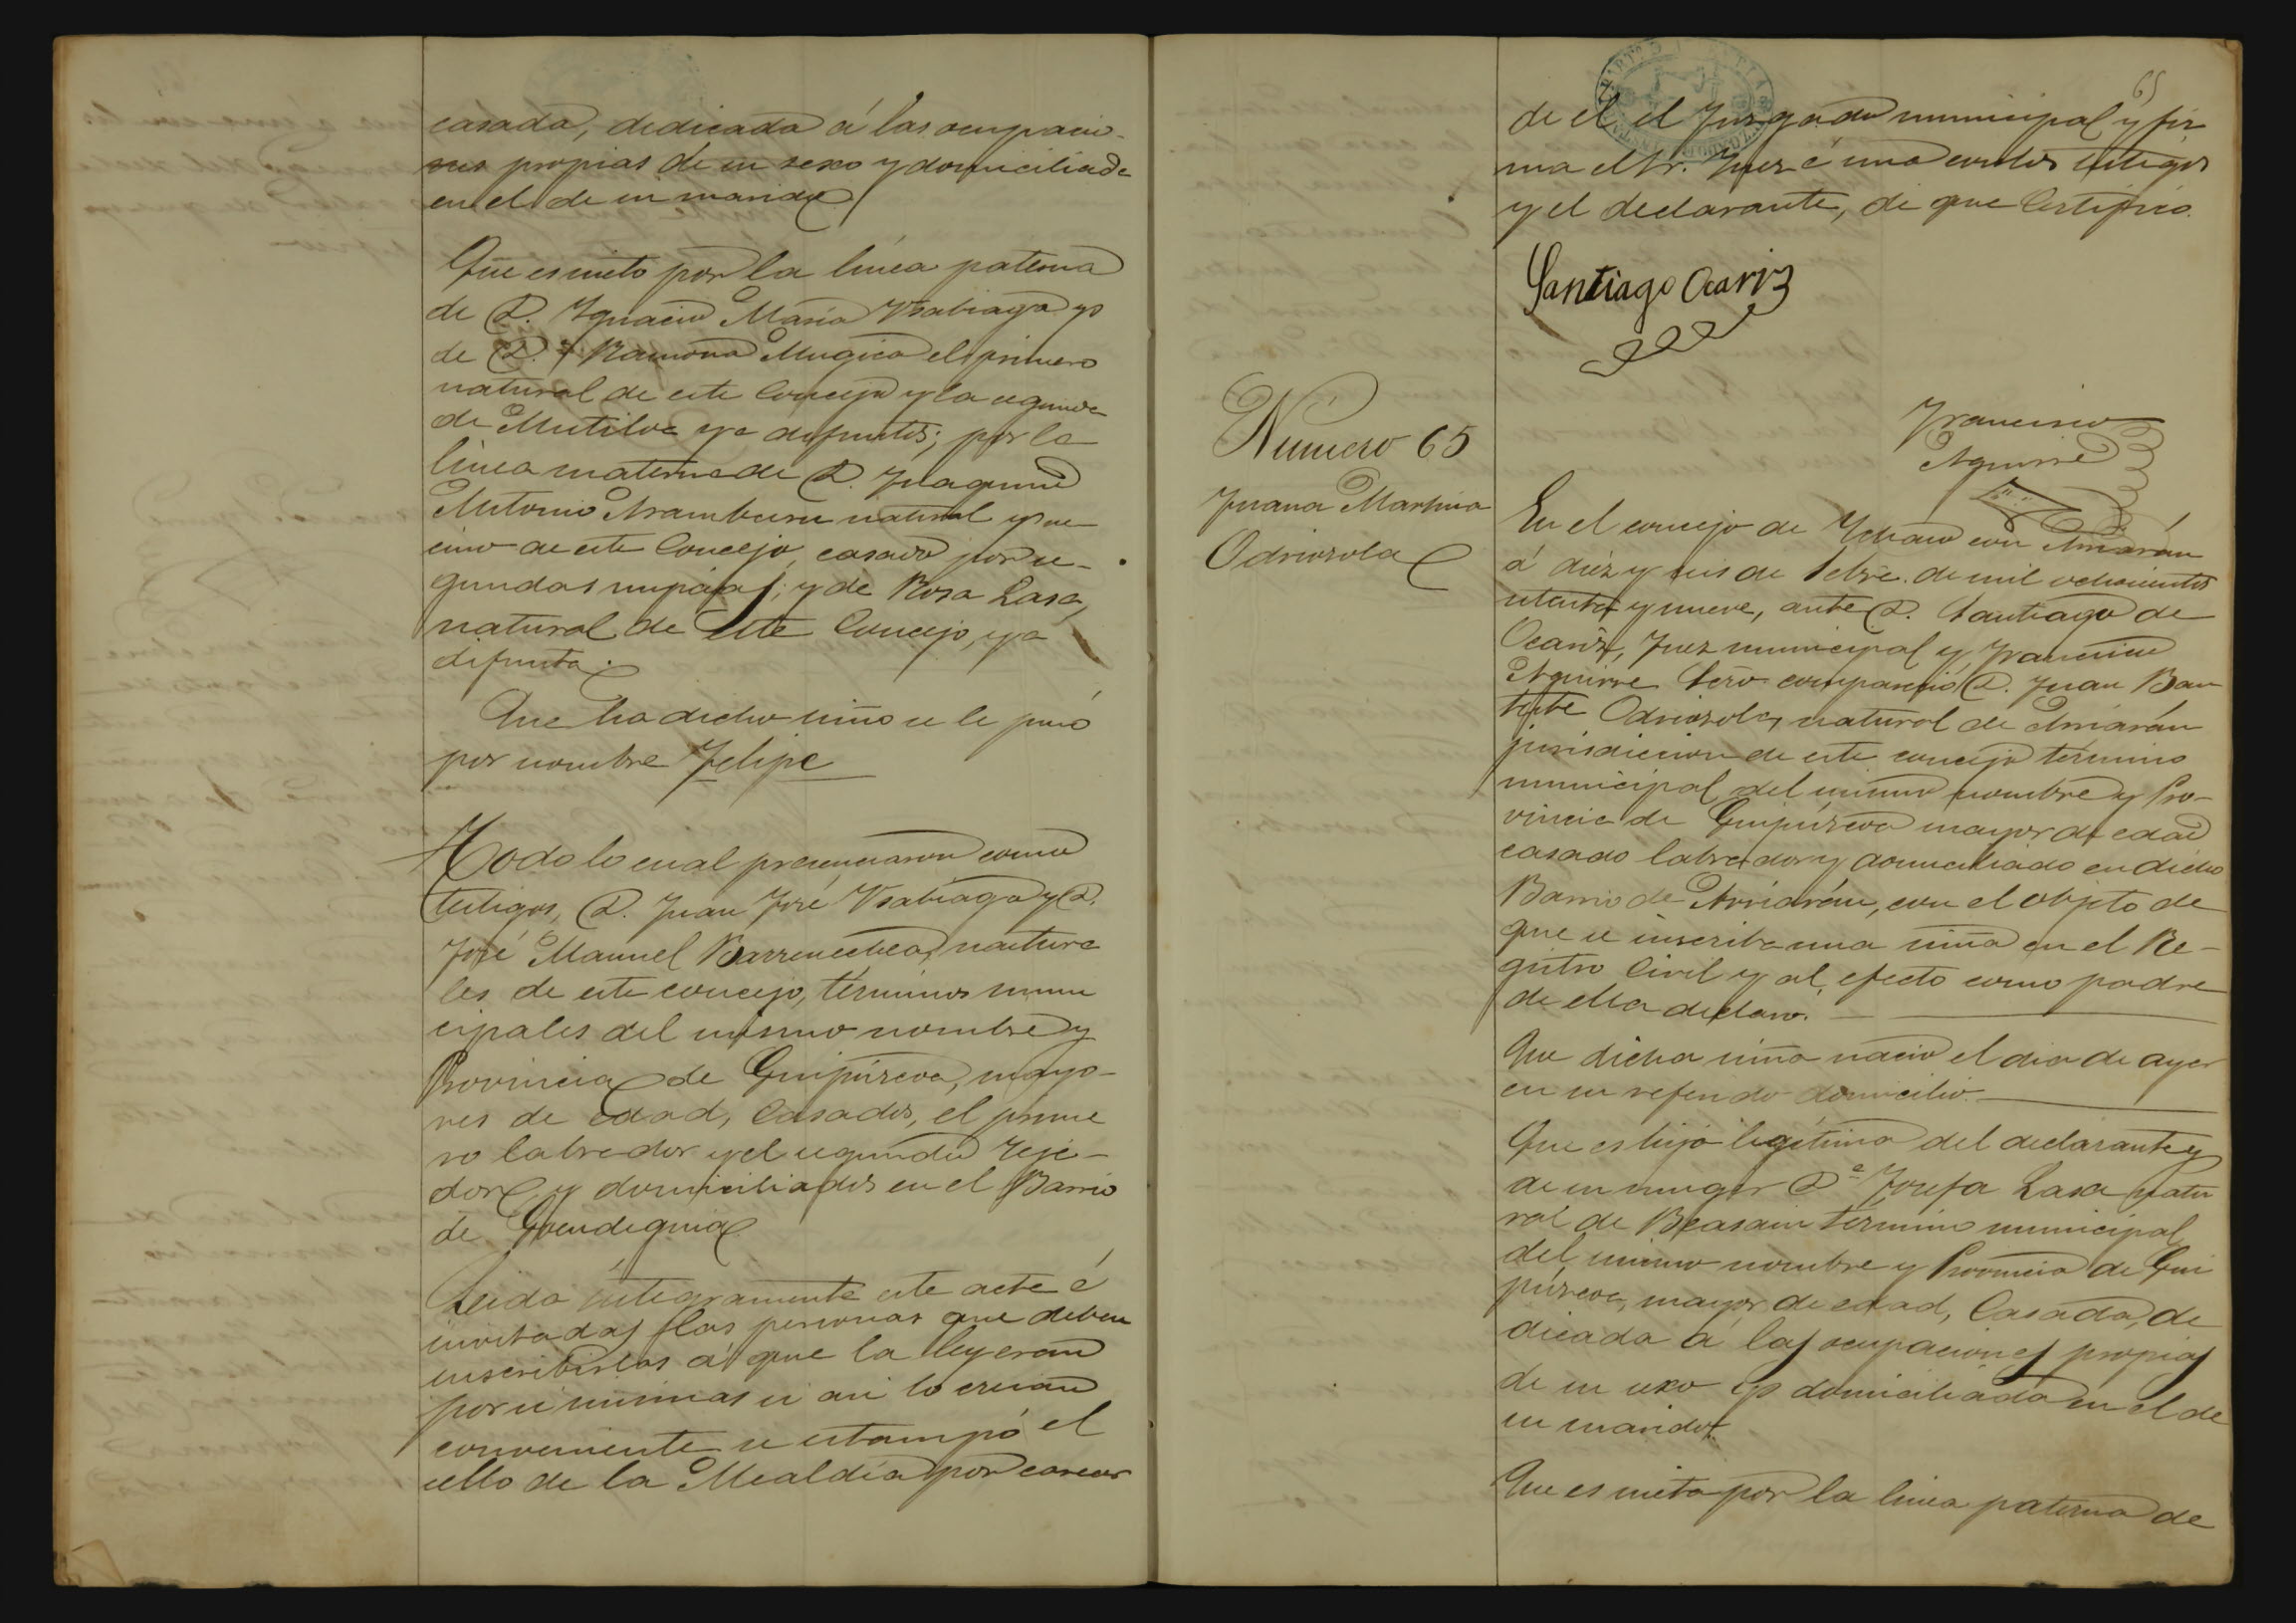 casada, dedicada á las ocupacio-
nes propias de su sexo y domiciliada
en el de su marido
Que es nieto por la línea paterna
de D. Ygnacio María Usabiaga y
de D.ª Ramona Mugica el primero
natural de este Concejo y la segunda
de Mutiloa ya difuntos; por la
línea materna de D. Juaquin
Antonio Aramburu natural y ve-
cino de este Concejo, casado por se-
gundas nupcias; y de Rosa Lasa,
natural de este Concejo, ya
difunta.
Que ha dicho niño se le puso
por nombre Felipe
Todo lo cual presenciaron como
testigos, D. Juan José Usabiaga y D.
José Manuel Barrenechea, natura
les de este concejo, términos muni
cipales del mismo nombre y
Provincia de Guipúzcoa, mayo-
res de edad, Casados, el prime
ro labrador y el segundo Teje-
dor y domiciliados en el Barrio
de
Leida íntegramente este acta é
invitadas las personas que deben
suscribirlas á que la leyeran
por si mismas si asi lo creian
conveniente se estampó el
sello de la Alcaldía por carecer
65
de el el Juzgado municipal y fir
ma el Sr. Juez é una con los testigos
y el declarante, de que Certifico.
Santiago Ocariz
Francisco
Aguirre
Número 65
Juana Martina
Odriozola
En el concejo de con Arriarán
á diez y seis de Sebre. de mil ochocientos
setenta y nueve, ante D. Santiago de
Ocariz, Juez municipal y Francisco
Aguirre Srio compareció D. Juan Bau
tista Odriozola, natural de Arriarán
jurisdiccion de este concejo término
municipal del mismo nombre y Pro-
vincia de Guipúzcoa mayor de edad
casado labrador y domiciliado en dicho
Barrio de Arriarán, con el objeto de
que se inscriba una niña en el Re-
gistro Civil y al efecto como padre
de ella declaró.
Que dicha niña nació el dia de ayer
en su referido domicilio.
Que es hija legítima del declarante y
de su muger D.ª Josefa Lasa natu
ral de Beasain término municipal
del mismo nombre y Provincia de Gui
púzcoa, mayor de edad, Casada, de
dicada á las ocupaciones propias
de su sexo y domiciliada en el de
su marido.
Que es nieta por la línea paterna de